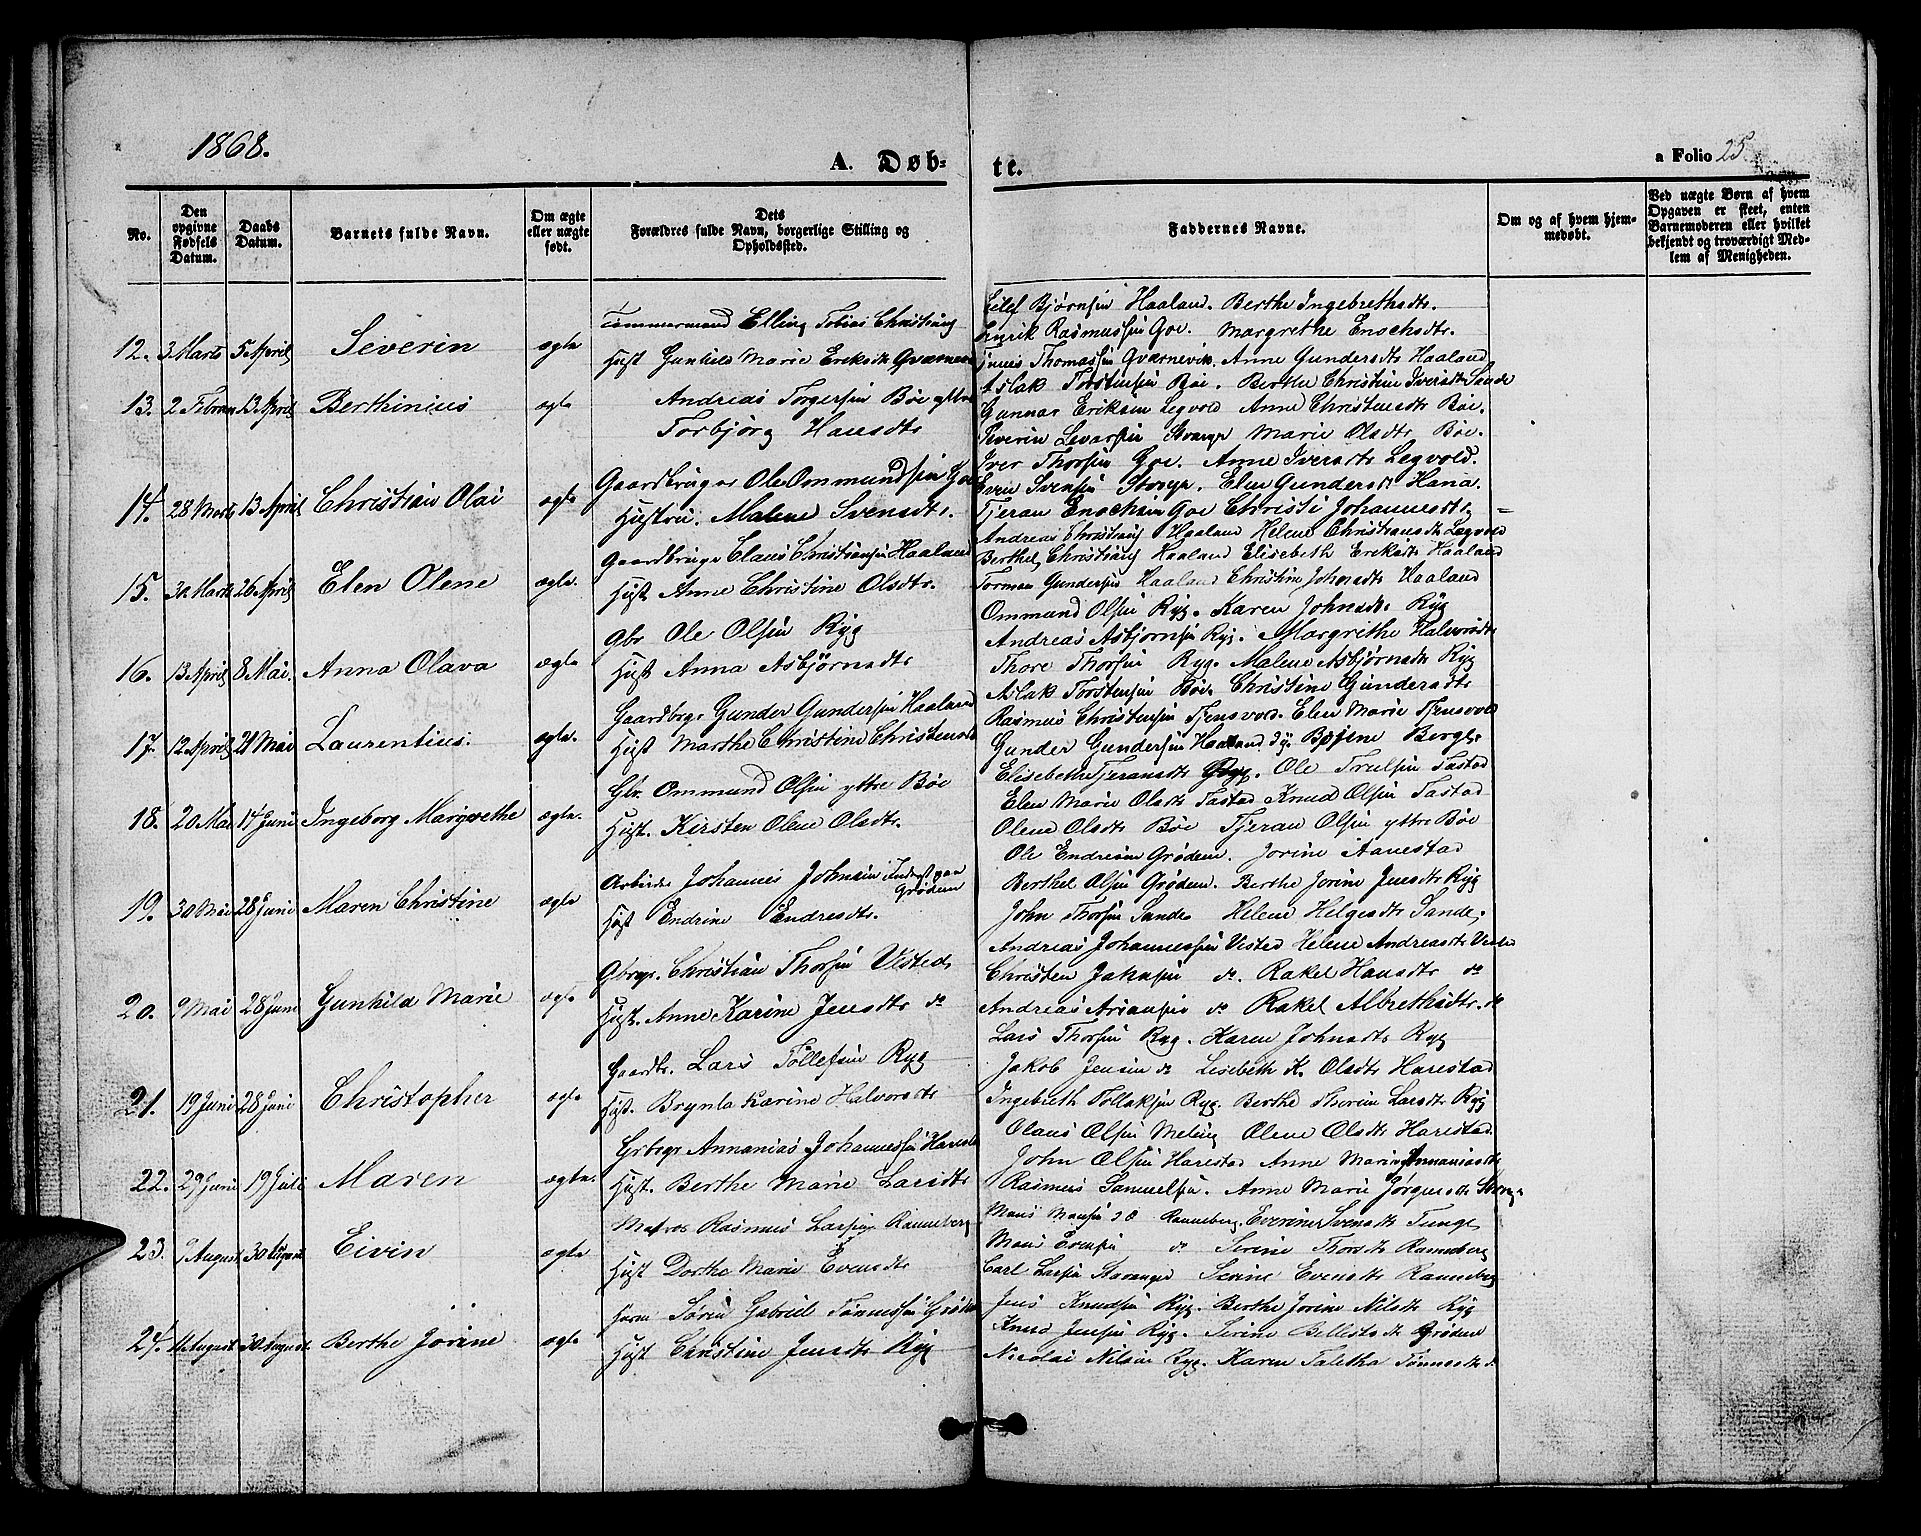 1868.
A. Døb-
te.
a Folio 25
No.
Den opgivne Fødsels Datum.
Daabs Datum.
Barnets fulde Navn.
Om ægte eller nægte født.
Dets Forældres fulde Navn, borgerlige Stilling og Opholdssted.
Faddernes Navne.
Om og af hvem hjemmedøbt.
Ved nægte Børn af hvem Opgaven er skeet, enten Barnemoderen eller hvilket bekjendt og troværdigt Medlem af Menigheden.
12. 3 Marts 5 April Severin ægte
Tømmermand Elling Tobias Christians
Hust Gunhild Marie Eriksdtr Qværnevi
Bjørnsen Haaland. Berthe Ingebrethsdtr.
Henrik Rasmussen Goe. Margrethe Enochsdtr.
Tønnes Thomassen Qværnevik. Anne Gundersdtr Haaland
13. 2 Februar 13 April Berthinius ægte
Andreas Torgersen Bøe yttre
Torbjørg Hansdtr
Aslak Torstensen Bøe. Berthe Christine Iversdtr Sande
Gunnar Eriksen Legvold Anne Christensdtr Bøe.
Severin Levarsen Stavanger Marie Olsdtr Bøe.
14. 28 Marts 13 April Christian Olai ægte
Gaardbruger Ole Ommundsen Goe
Hustru. Malene Svensdtr.
Iver Thorsen Goe. Anne Iversdtr Legvold.
Even Svensen Stavgr. Elen Gundersdt Hana.
Tjeran Enochsen Goe Christi Johannesdtr =
15. 30 Marts 26 April Elen Olene ægte.
Gaardbruger Claus Christiansen Haaland
Hust Anne Christine Olsdtr.
Andreas Christians Haaland Helene Christiansdtr Legvold
Berthel Christians Haaland Elisabeth Eriksdtr Haaland
Tormon Gundersen Haaland Christine Johnsdtr Haaland
16. 13 April 8 Mai. Anna Olava ægte
Gbr Ole Olsen Ryg
Hust Anna Asbjørnsdtr
Ommund Olsen Ryg. Karen Johnsdtr Ryg
Andreas Asbjørnsen Ryg. Margrethe Halvorsdtr
Thore Thorsen Ryg. Malene Asbjørnsdtr Ryg
17. 12 April 21 Mai Laurentius. ægte.
Gaardbrgr Gunder Gundersen Haaland
Hust Marthe Christine Christensdtr
Aslak Torstensen Bøe. Christine Gundersdtr
Rasmus Christensen Tjensvold. Elen Marie Tjensvold
Gunder Gundersen Haaland Berge
18. 20 Mai 14 Juni Ingeborg Margrethe ægte.
Gbr. Ommund Olsen yttre Bøe
Hust. Kirsten Olene Olsdtr.
Elisabeth Tjeransdtr Ryg. Ole Trulsen Tasted
Elen Marie Olsdtr Tastad Knud Olsen Tastad
Olene Olsdtr Bøe Tjeran Olsen yttre Bøe
19. 30 Mai 28 Juni Maren Christine ægte
Arbeider Johannes Johnsen Inderst paa Grødem
Hust Endrine Endresdtr.
Ole Endresen Grødem. Jorine Aanestad
Berthel Olsen Grødem. Berthe Jorine Jensdtr Ryg
John Thorsen Sande Helene Helgesdtr Sande.
20. 9 Mai 28 Juni Gunhild Marie ægte
Gbrgr. Christian Thorsen Visted
Hust. Anne Karine Jensdtr do
Andreas Johannessen Visted Helene Andreasdtr Visted
Christen Jahnsen do Rakel Hansdtr do
Andreas Ariansen do Rakel Albrethsdtr. do
21. 19 Juni 28 Juni Christopher ægte
Gaardbr. Lars Tollefsen Ryg
Hust. Brynla Karine Halvorsdtr
Lars Thorsen Ryg. Karen Johnsdtr Ryg
Jakob Jensen do Lisebeth K. Olsdtr Harestad
Ingebreth Tollaksen Ryg. Berthe Thorine Larsdtr Ryg
22. 29 Juni 19 Juli Maren ægte.
Grbrgr Annanias Johannessen Harestad
Hust. Berthe Marie Larsdtr
Olaus Olsen Meling Olene Olsdtr Harestad.
John Olsen Harestad Anne Marie Annaniasdtr
Rasmus Samuelsen. Anne Marie Jørgensdtr
23. 9 August 30 August Eivin ægte
Matros Rasmus Larsen Ranneberg
Hust Dorthe Marie Evensdtr
Mons Monsen Ranneberg. Everine Svensdtr Tunge
Mons Evensen do Serine Thorsdtr Ranneberg
Carl Larsen Stavanger Serine Evensdtr Ranneberg
24. 11 August 30 August Berthe Jorine ægte
Søren Gabriel Tønnessen Grødem
Hust Christine Jensdtr Ryg
Jens Knudsen Ryg. Berthe Jorine Nilsdtr Ryg
Knud Jensen Ryg. Serine Grødem
Nicolai Nilsen Ryg. Karen Taletha Tønnesdtr do